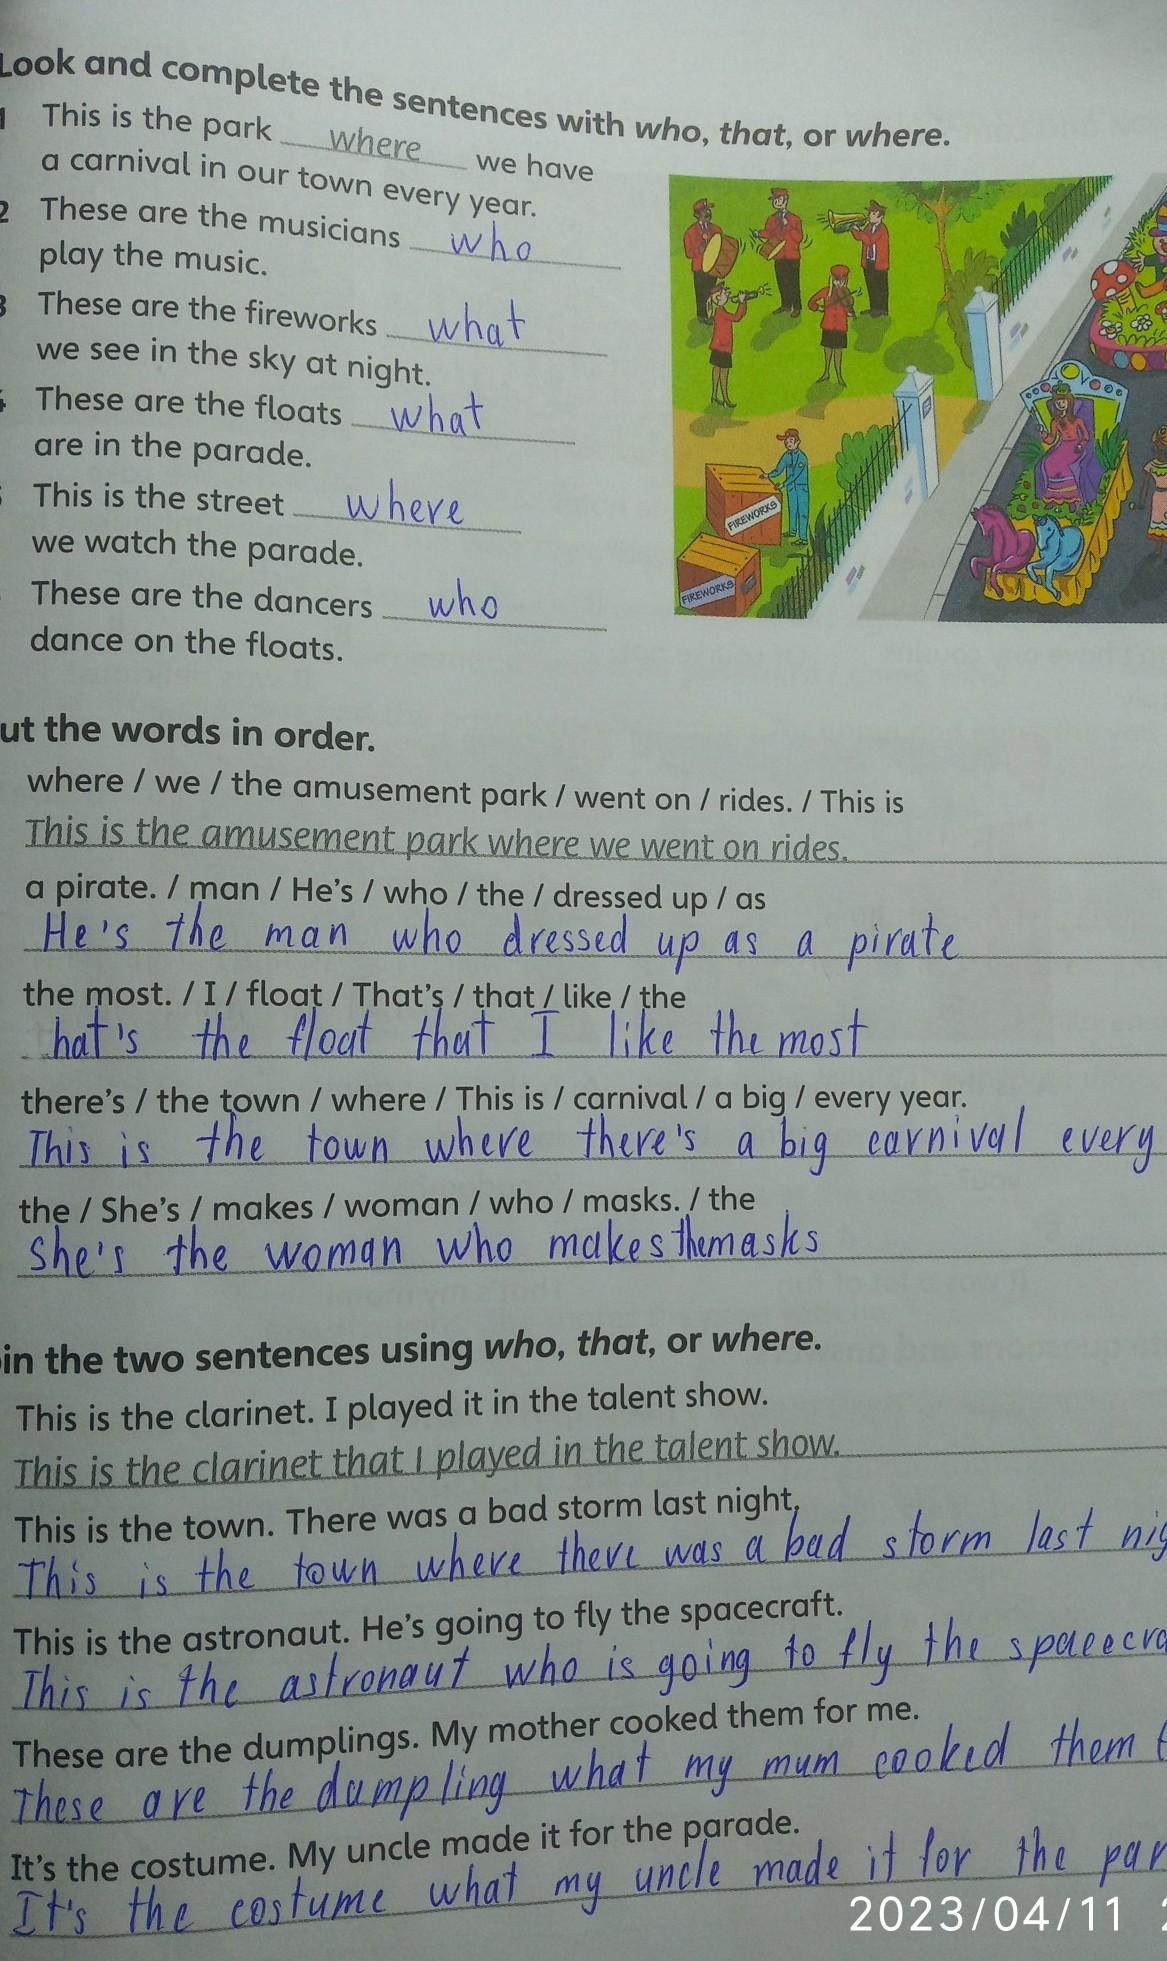 Look and complete the sentences with who, that, or where.
1 This is the park where we have
a carnival in our town every year.
2 These are the musicians who
play the music.
3 These are the fireworks what
we see in the sky at night.
These are the floats what
are in the parade.
This is the street where
we watch the parade.
These are the dancers who
dance on the floats.
FIREWORKS
FIREWORKS
ut the words in order.
where / we / the amusement park / went on / rides. / This is
This is the amusement park where we went on rides.
a pirate. / man / He's / who / the / dressed up / as
He's the man who dressed up as a pirate
the most. / I / float / That's / that / like / the
hat's the float that I like the most
there's / the town / where / This is / carnival / a big / every year.
This is the town where there's a big carnival every
the / She's / makes / woman / who / masks. / the
She's the woman who makes the masks
in the two sentences using who, that, or where.
This is the clarinet. I played it in the talent show.
This is the clarinet that I played in the talent show.
This is the town. There was a bad storm last night.
This is the town where there was a bad storm last nig
This is the astronaut. He's going to fly the spacecraft.
This is the astronaut who is going to fly the spacecra
These are the dumplings. My mother cooked them for me.
These are the dumpling what my mum cooked them
It's the costume. My uncle made it for the parade.
It's the costume what my uncle made it for the par
2023/04/11